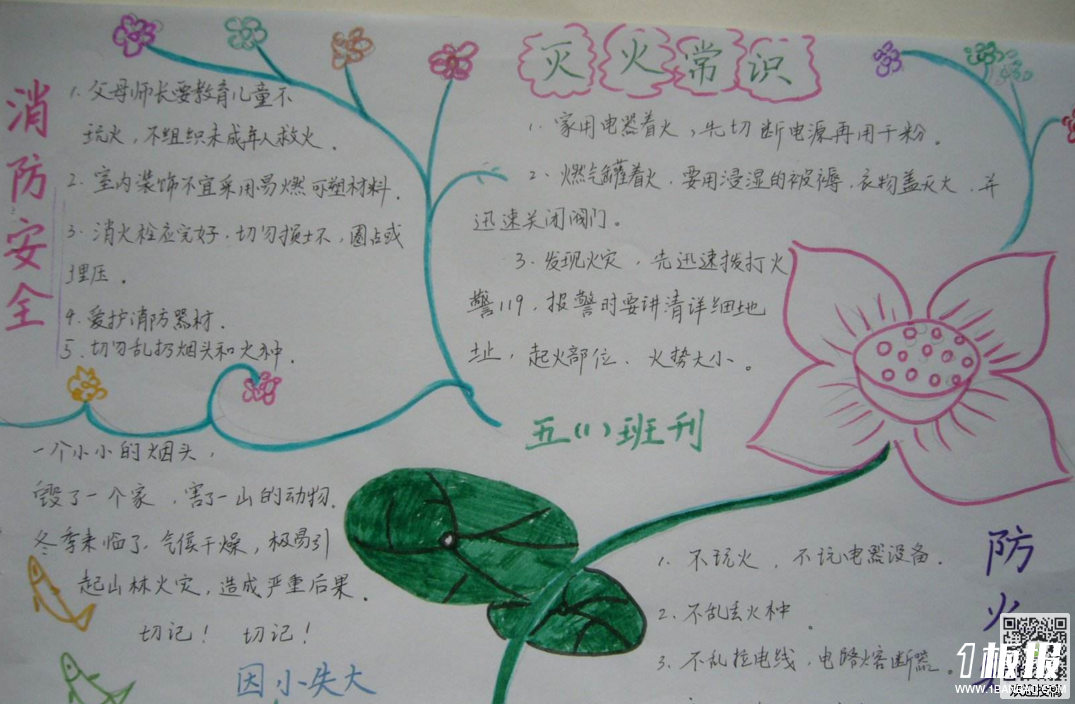 消防安全
1. 父母师长要教育儿童不
玩火，不组织未成年人救火.
2. 室内装饰不宜采用易燃可塑材料.
3. 消火栓应完好，切勿损坏，圈占或
埋压.
4. 爱护消防器材.
5. 切勿乱扔烟头和火种.
灭火常识
1. 家用电器着火，先切断电源再用干粉.
2. 燃气罐着火，要用浸湿的被褥，衣物盖灭火，并
迅速关闭阀门。
3. 发现火灾，先迅速拨打火
警119，报警时要讲清详细地
址，起火部位、火势大小。
五(1)班刊
一个小小的烟头，
毁了一个家，害了一山的动物.
冬季来临了，气候干燥，极易引
起山林火灾，造成严重后果.
切记！ 切记！
因小失大
防火
1. 不玩火，不玩电器设备.
2. 不乱丢火种.
3. 不乱拉电线，电路熔断器。
1板报
WWW.1BANBAO.COM
欢迎投稿